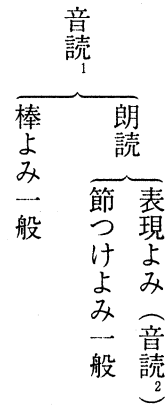 音読1
朗読
表現よみ（音読2）
節つけよみ一般
棒よみ一般